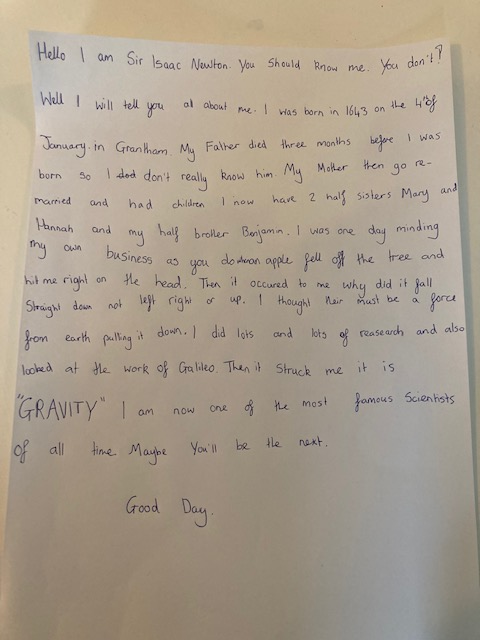 Hello I am Sir Isaac Newton. You Should know me. You don't!?
Well I will tell you al about me. I was born in 1643 on the 4th of
January. in Grantham. My Father died three months before I was
born so I don't really know him. My Mother then go re-
married and had children I now have 2 half sisters Mary and
Hannah and my half brother Benjamin. I was one day minding
my own business as you do when an apple fell off the tree and
hit me right on the head. Then it occured to me why did it fall
Straight down not left right or up. I thought their must be a force
from earth pulling it down. I did lots and lots of reasearch and also
looked at the work of Galileo. Then it Struck me it is
"GRAVITY" I am now one of the most famous Scientists
Of all time Maybe You'll be the next.
Good Day.